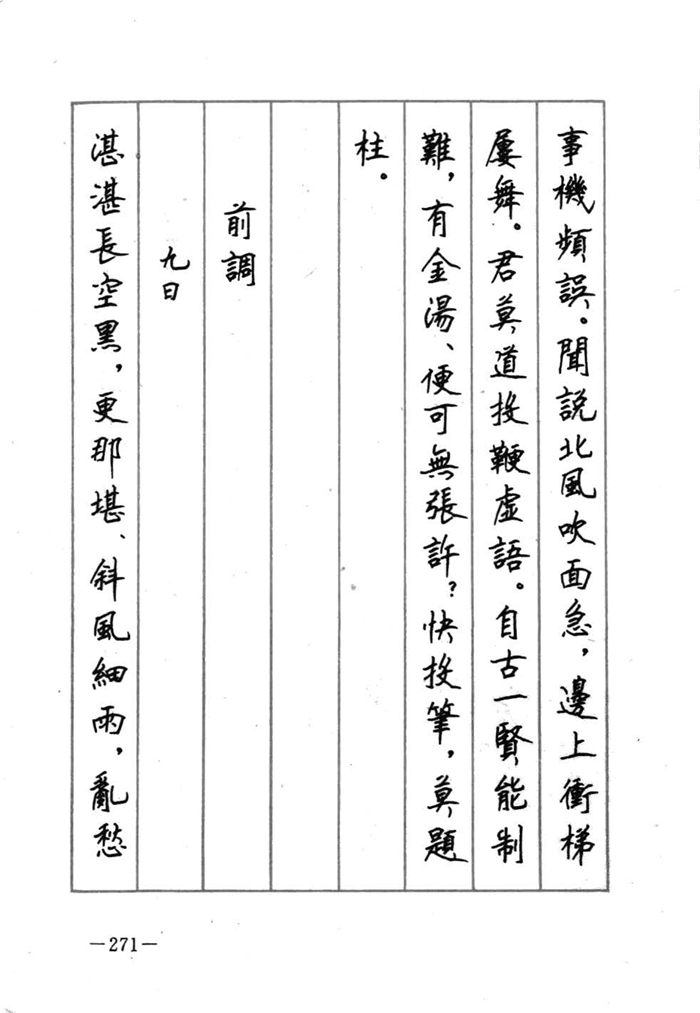 事機頻誤。聞説北風吹面急，邊上衝梯
屢舞。君莫道投鞭虛語。自古一賢能制
難，有金湯、便可無張許？快投筆，莫題
柱。
前調
九日
湛湛長空黑，更那堪、斜風細雨，亂愁
—271—